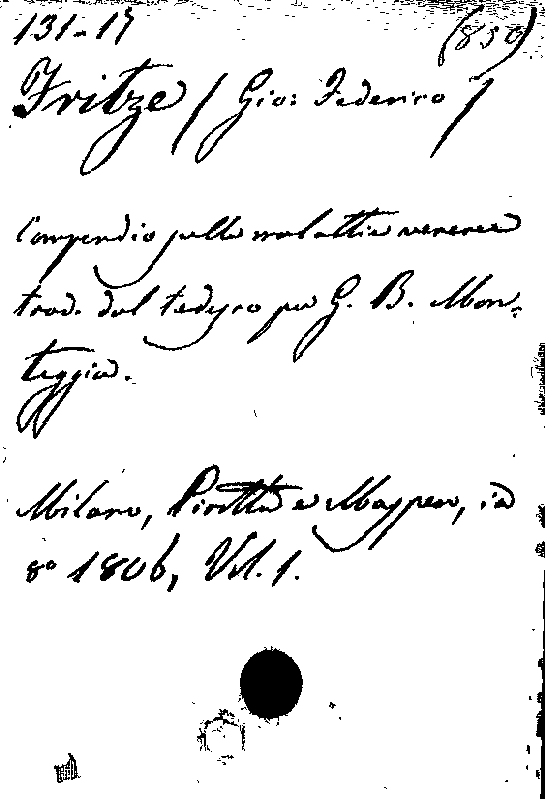 131-17 (850)
Fritze / Gio: Federico /
Compendio sulle malattie veneree
trad. dal tedesco per G. B. Mon-
teggia.
Milano, Pirotta e Maspero, in
8º 1806, Vol. 1.